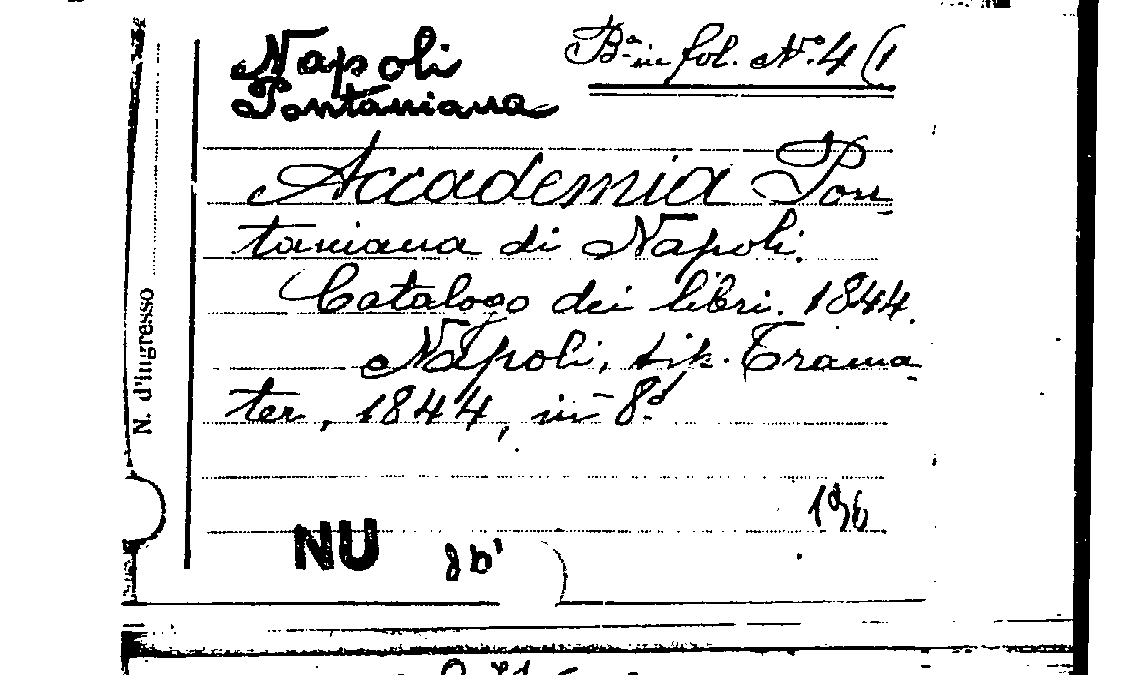 Napoli
Pontaniana
Bª in fol. Nº 4 (1
Accademia Pon=
taniana di Napoli.
Catalogo dei libri. 1844.
Napoli, tip. Trama=
ter, 1844, in 8º
N. d'ingresso
196
NU